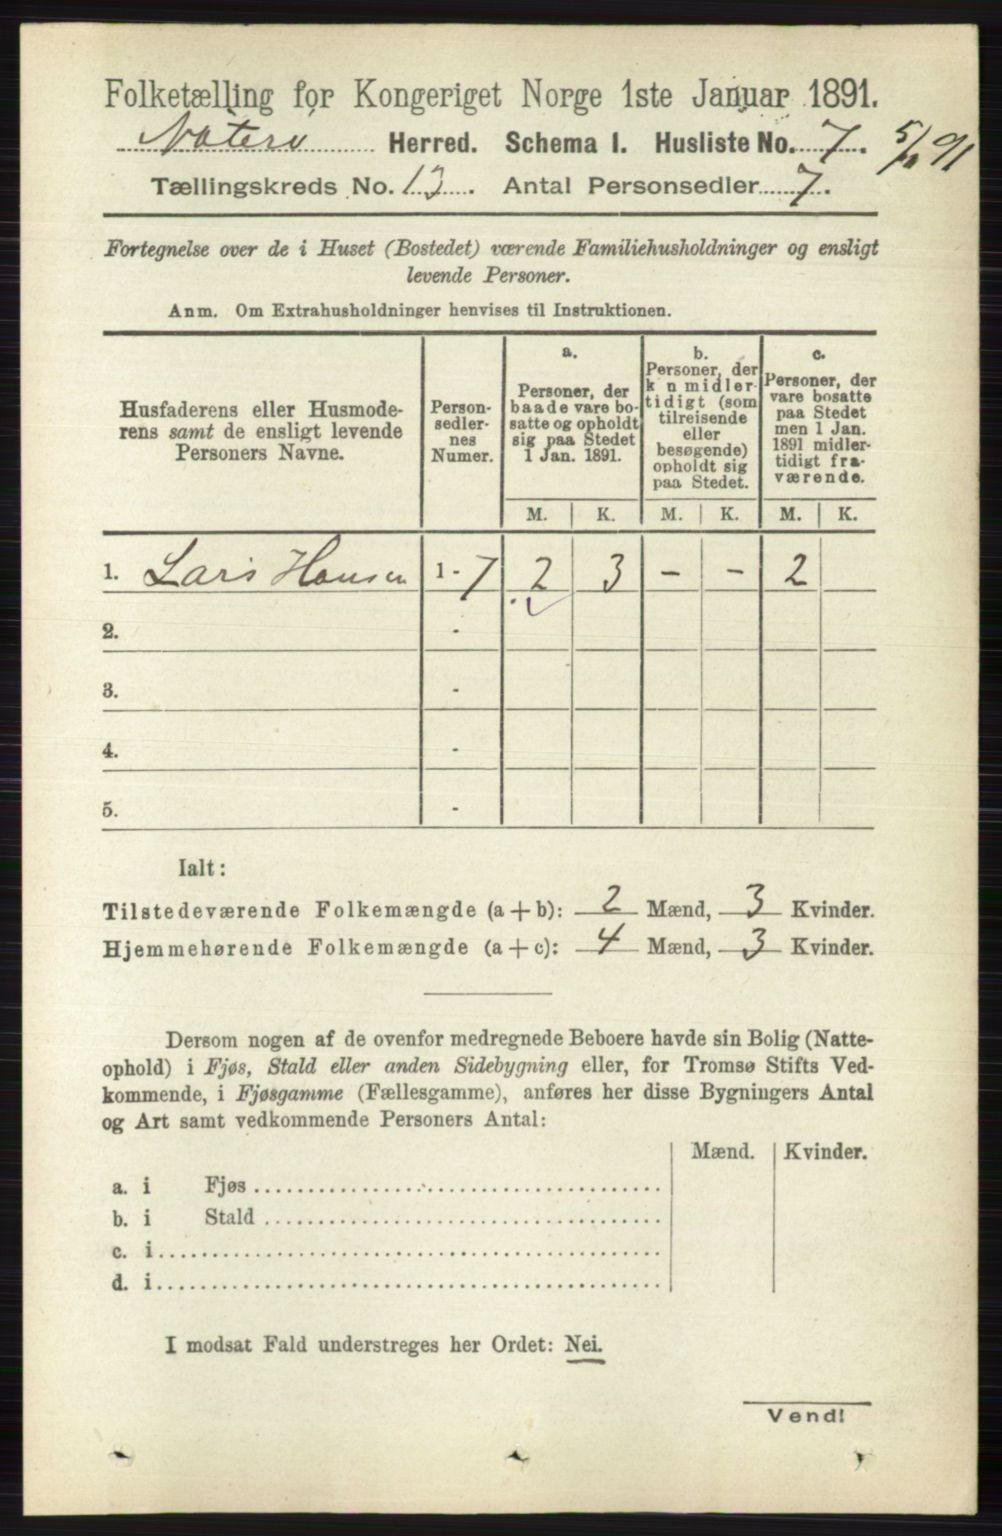 Folketælling for Kongeriget Norge 1ste Januar 1891.
Nøterø Herred. Schema I. Husliste No. 7. 5/11 91
Tællingskreds No. 13. Antal Personsedler 7.
Fortegnelse over de i Huset (Bostedet) værende Familiehusholdninger og ensligt
levende Personer.
Anm. Om Extrahusholdninger henvises til Instruktionen.
Husfaderens eller Husmode-
rens samt de ensligt levende
Personers Navne.
Person-
sedler-
nes
Numer.
a.
Personer, der
baade vare bo-
satte og opholdt
sig paa Stedet
1 Jan. 1891.
b.
Personer, der
k n midler-
tidigt (som
tilreisende
eller
besøgende)
opholdt sig
paa Stedet.
c.
Personer, der
vare bosatte
paa Stedet
men 1 Jan.
1891 midler-
tidigt fra-
værende.
M. K. M. K. M. K.
1. Lars Hansen 1 - 7 2 3 - - 2
2. -
3. -
4. -
5. -
Ialt:
Tilstedeværende Folkemængde (a+b): 2 Mænd, 3 Kvinder.
Hjemmehørende Folkemængde (a+c): 4 Mænd, 3 Kvinder.
Dersom nogen af de ovenfor medregnede Beboere havde sin Bolig (Natte-
ophold) i Fjøs, Stald eller anden Sidebygning eller, for Tromsø Stifts Ved-
kommende, i Fjøsgamme (Fællesgamme), anføres her disse Bygningers Antal
og Art samt vedkommende Personers Antal:
Mænd. Kvinder.
a. i Fjøs
b. i Stald
c. i
d. i
I modsat Fald understreges her Ordet: Nei.
Vend!